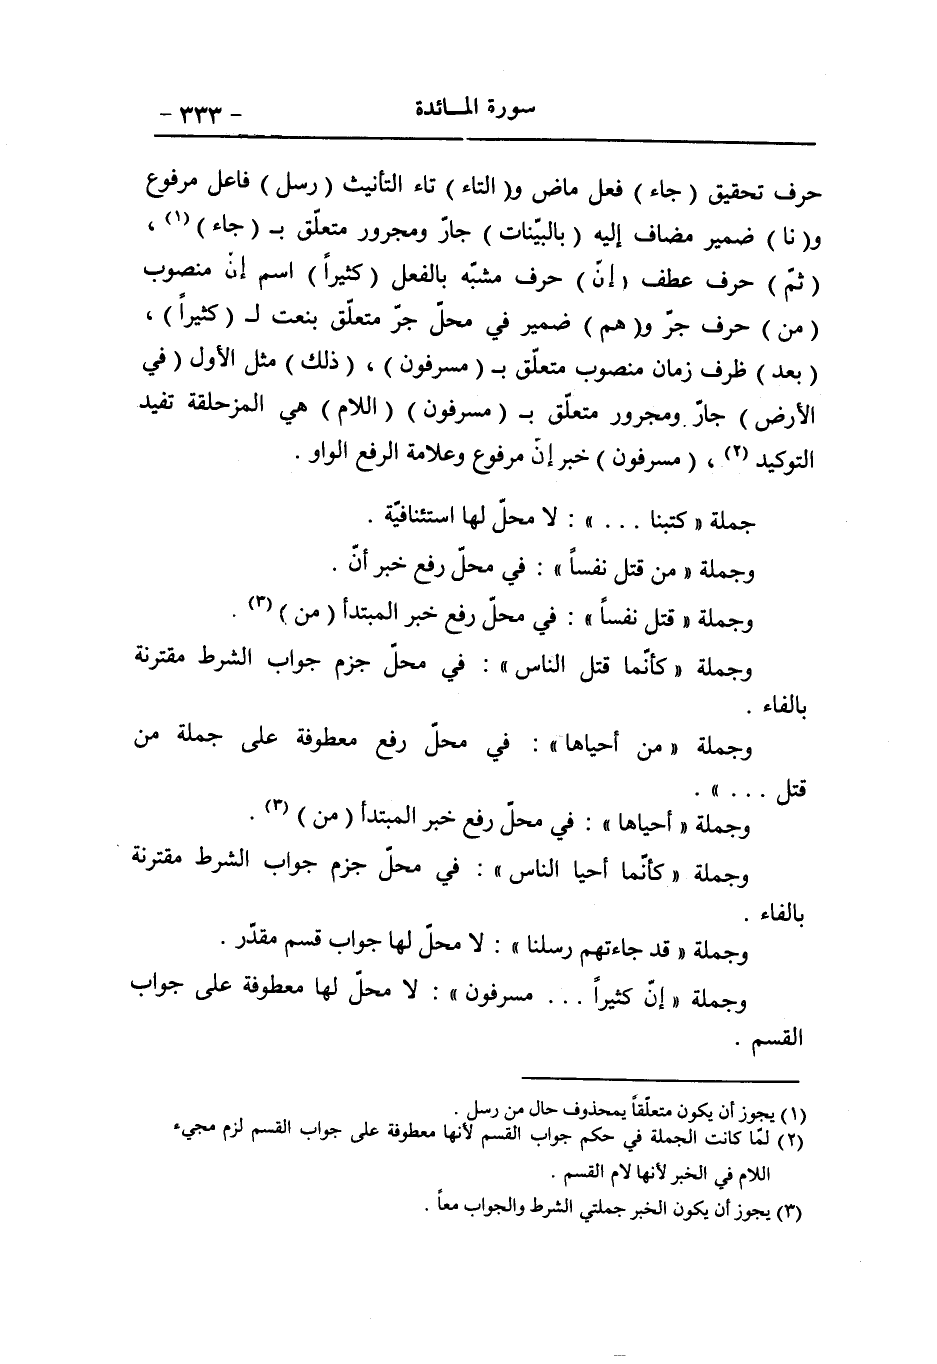 سورة المائدة - ٣٣٣ -
حرف تحقيق ( جاء ) فعل ماض و( التاء ) تاء التأنيث ( رسل ) فاعل مرفوع
و( نا ) ضمير مضاف إليه ( بالبيّنات ) جارّ ومجرور متعلّق بـ ( جاء ) (١) ،
( ثمّ ) حرف عطف ( إنّ ) حرف مشبّه بالفعل ( كثيراً ) اسم إنّ منصوب
( من ) حرف جرّ و( هم ) ضمير في محلّ جرّ متعلّق بنعت لـ ( كثيراً ) ،
( بعد ) ظرف زمان منصوب متعلّق بـ ( مسرفون ) ، ( ذلك ) مثل الأول ( في
الأرض ) جارّ ومجرور متعلّق بـ ( مسرفون ) ( اللام ) هي المزحلقة تفيد
التوكيد (٢) ، ( مسرفون ) خبر إنّ مرفوع وعلامة الرفع الواو .
جملة « كتبنا . . . » : لا محلّ لها استئنافيّة .
وجملة « من قتل نفساً » : في محلّ رفع خبر أنّ .
وجملة « قتل نفساً » : في محلّ رفع خبر المبتدأ ( من ) (٣) .
وجملة « كأنّما قتل الناس » : في محلّ جزم جواب الشرط مقترنة
بالفاء .
وجملة « من أحياها » : في محلّ رفع معطوفة على جملة من
قتل . . . » .
وجملة « أحياها » : في محلّ رفع خبر المبتدأ ( من ) (٣) .
وجملة « كأنّما أحيا الناس » : في محلّ جزم جواب الشرط مقترنة
بالفاء .
وجملة « قد جاءتهم رسلنا » : لا محلّ لها جواب قسم مقدّر .
وجملة « إنّ كثيراً . . . مسرفون » : لا محلّ لها معطوفة على جواب
القسم .
(١) يجوز أن يكون متعلّقاً بمحذوف حال من رسل .
(٢) لمّا كانت الجملة في حكم جواب القسم لأنها معطوفة على جواب القسم لزم مجيء
اللام في الخبر لأنها لام القسم .
(٣) يجوز أن يكون الخبر جملتي الشرط والجواب معاً .